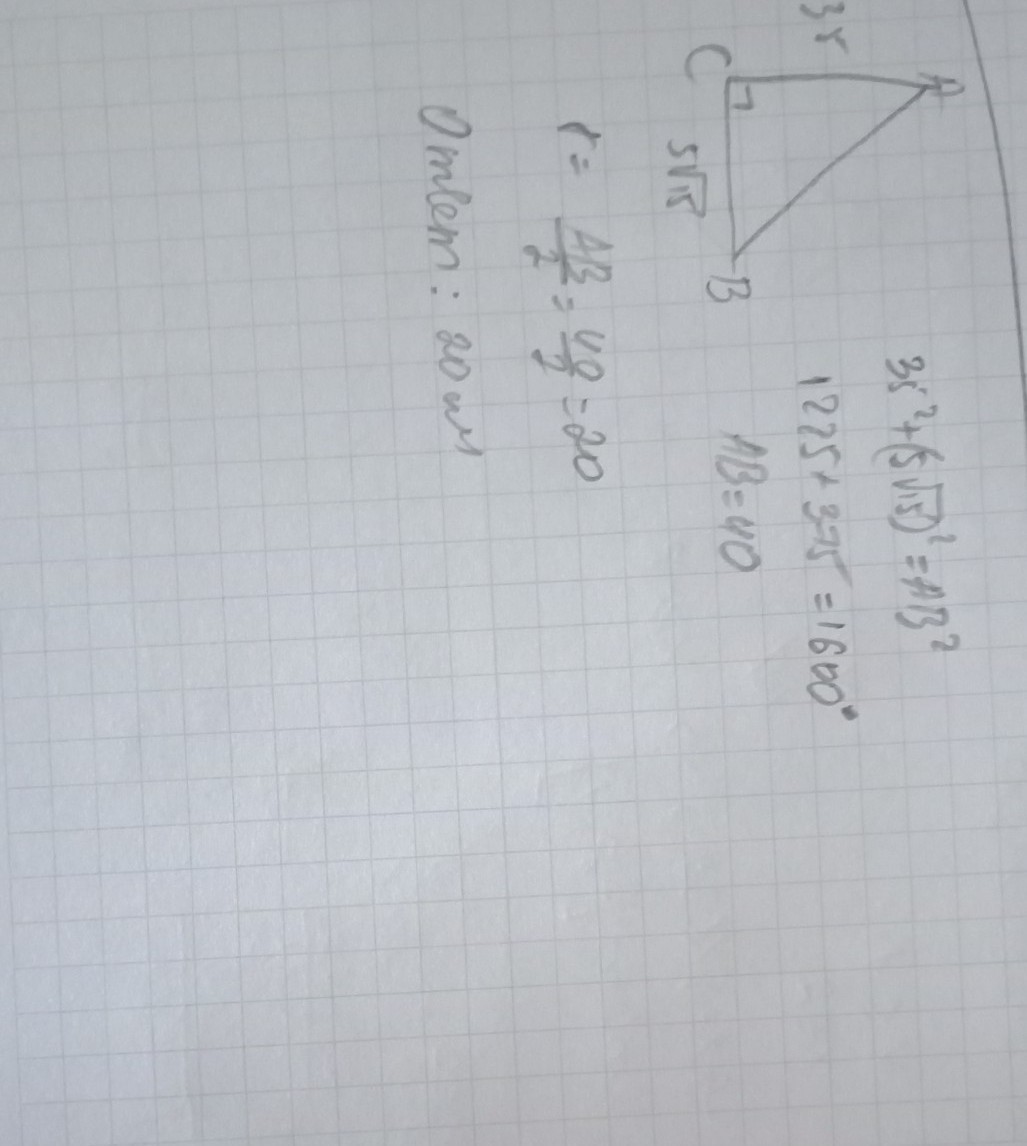 A
35
C
5√15
B
35²+(5√15)²=AB²
1225+375=1600
AB=40
r= AB/2 = 40/2 =20
Ответ: 20 см